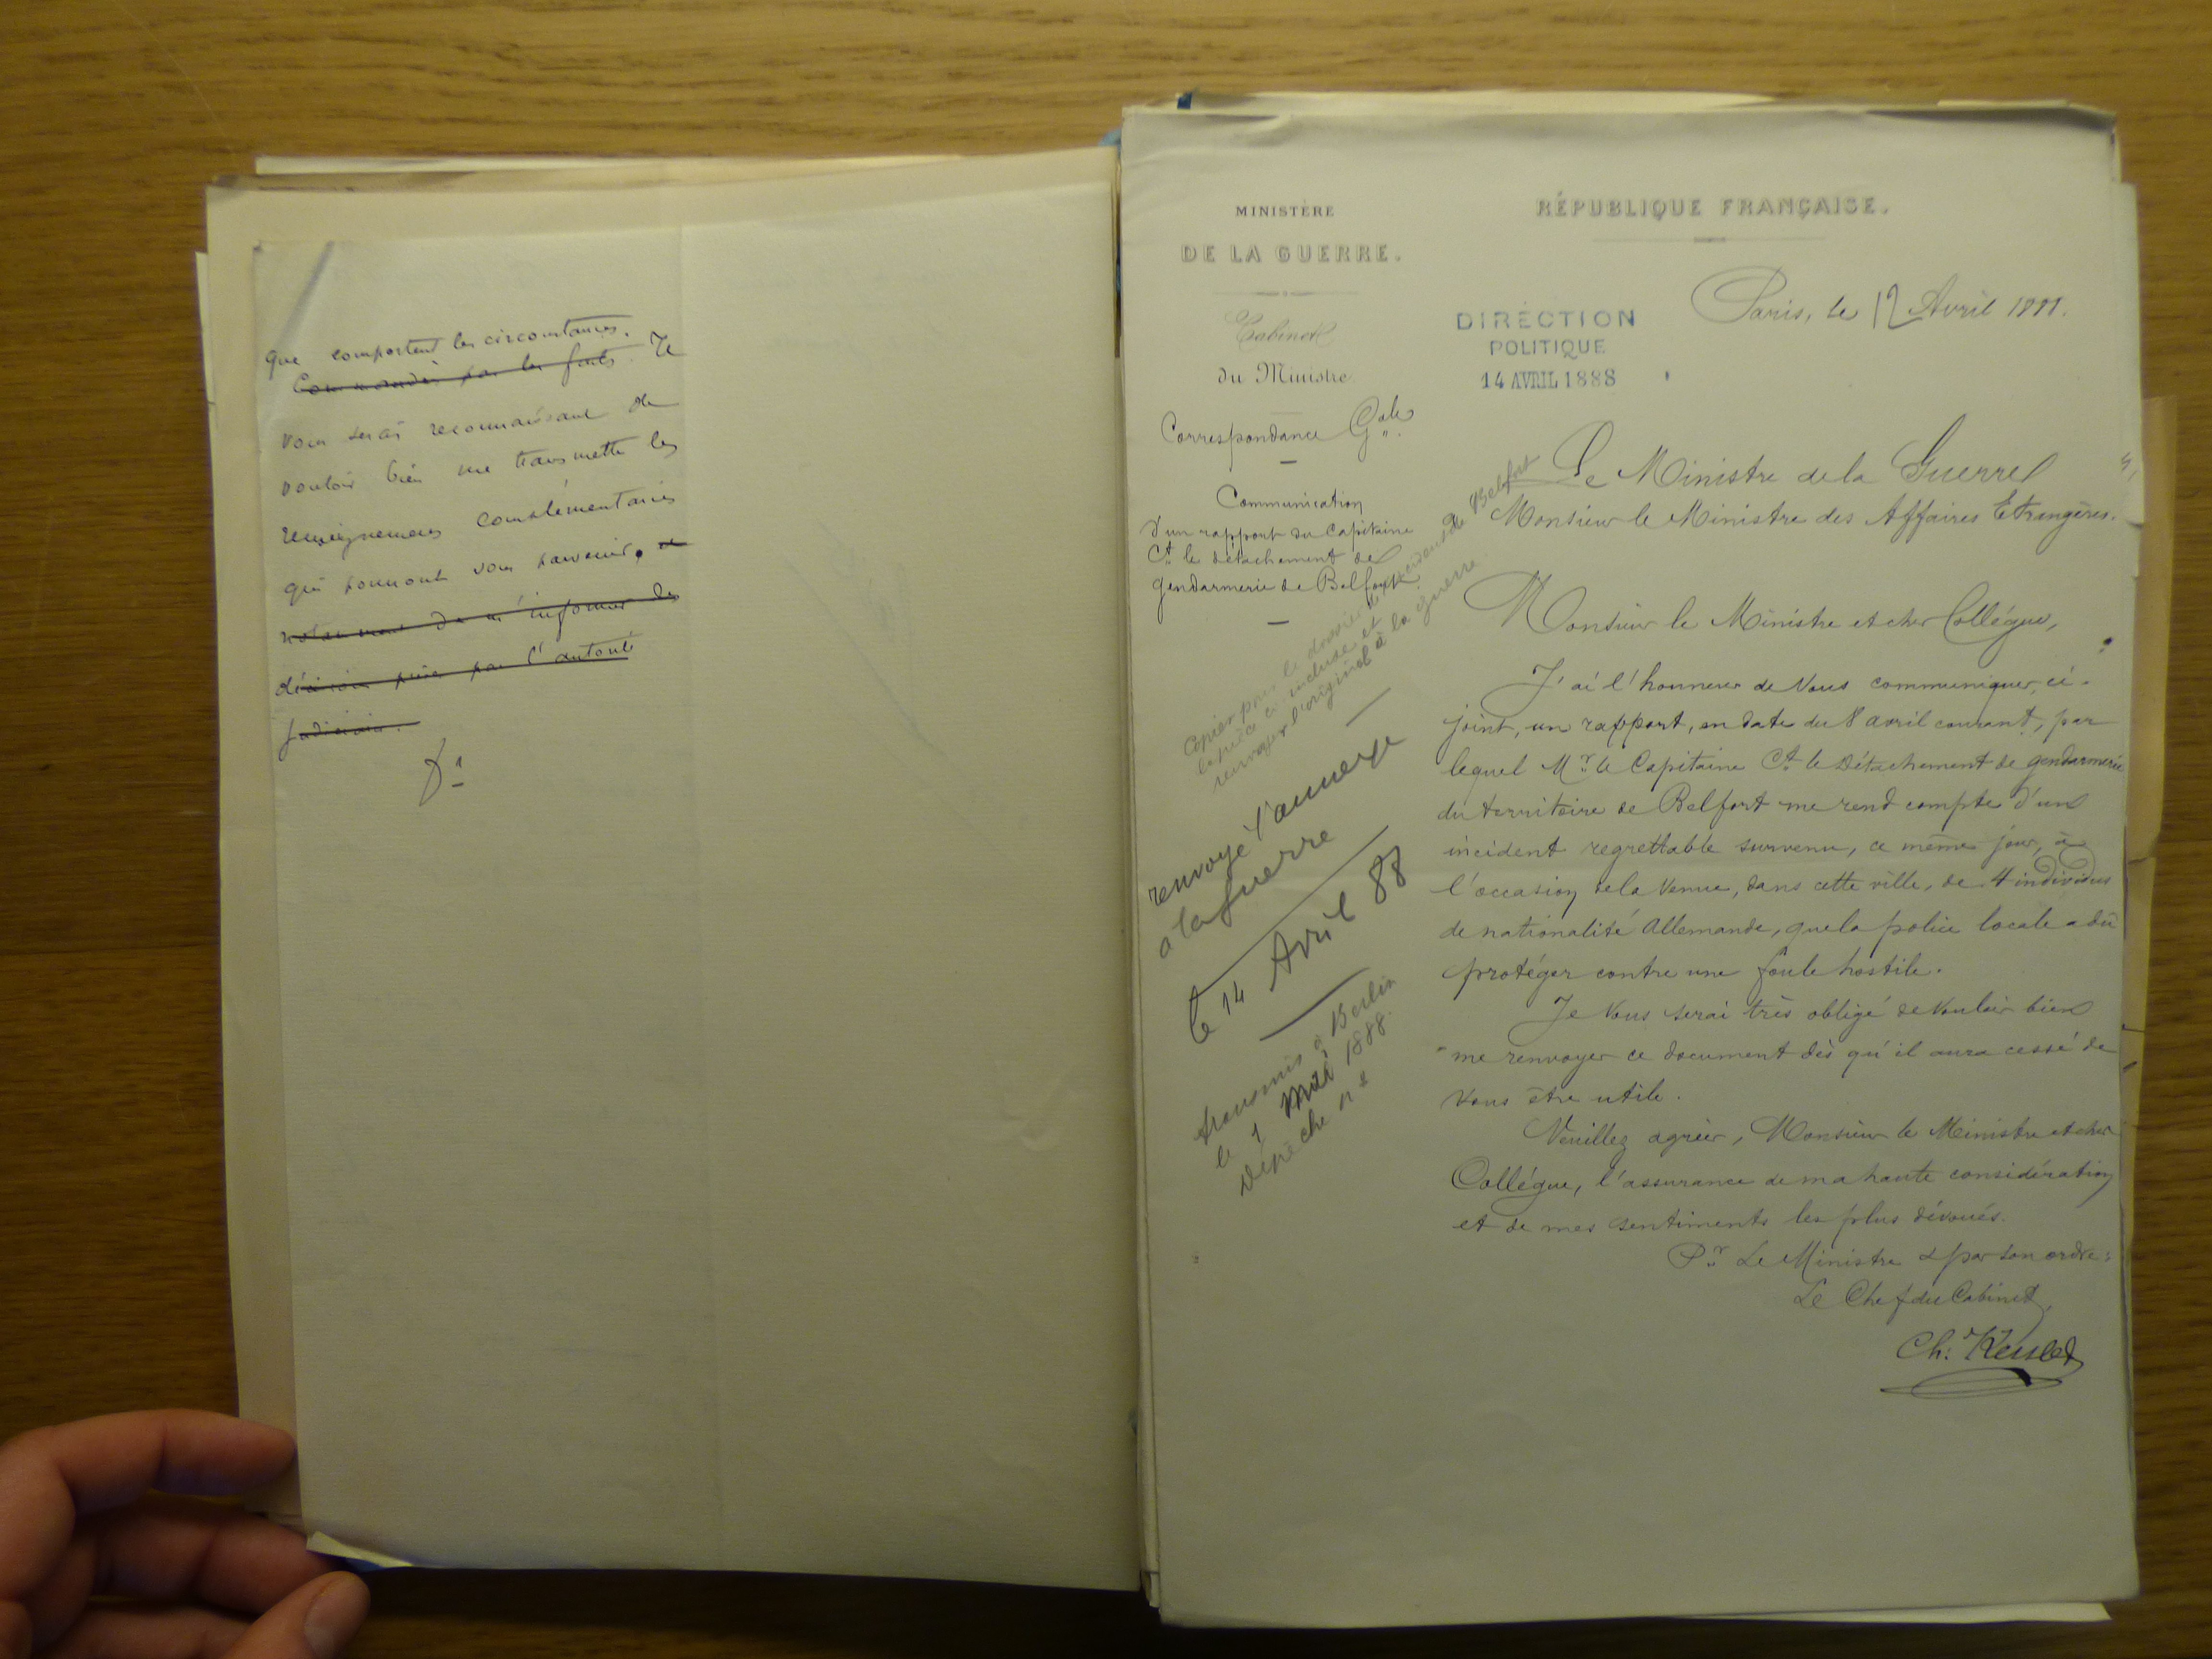 que comportent les circonstances.
Commandés par les faits. Je
vous serais reconnaissant de
vouloir bien me transmettre les
renseignements complémentaires
qui pourront vous parvenir, et
notamment de m'informer des
décisions prises par l'autorité
judiciaire.
MINISTÈRE
DE LA GUERRE.
Cabinet
du Ministre
Correspondance Gale
Communication
d'un rapport du Capitaine
Ct le détachement de
gendarmerie de Belfort
Copier pour le dossier de l'incident de Belfort
la pièce ci-incluse et
renvoyer l'original à la Guerre
renvoyé l'annexe
à la Guerre
le 14 Avril 88
transmis à Berlin
le 1 Mai 1888.
Dépêche n°
RÉPUBLIQUE FRANÇAISE.
Paris, le 12 Avril 1888.
DIRECTION
POLITIQUE
14 AVRIL 1888
Le Ministre de la Guerre
à Monsieur le Ministre des Affaires Etrangères.
Monsieur le Ministre et cher Collégue,
J'ai l'honneur de Vous communiquer, ci-
joint, un rapport, en date du 8 avril courant, par
lequel Mr le Capitaine Ct le Détachement de gendarmerie
du territoire de Belfort me rend compte d'un
incident regrettable survenu, ce même jour, à
l'occasion de la venue, dans cette ville, de 4 individus
de nationalité Allemande, que la police locale a dû
protéger contre une foule hostile.
Je Vous serai très obligé de vouloir bien
me renvoyer ce document dès qu'il aura cessé de
Vous être utile.
Veuillez agréer, Monsieur le Ministre et cher
Collégue, l'assurance de ma haute considération
et de mes sentiments les plus dévoués.
Pr Le Ministre & par son ordre:
Le Chef du Cabinet,